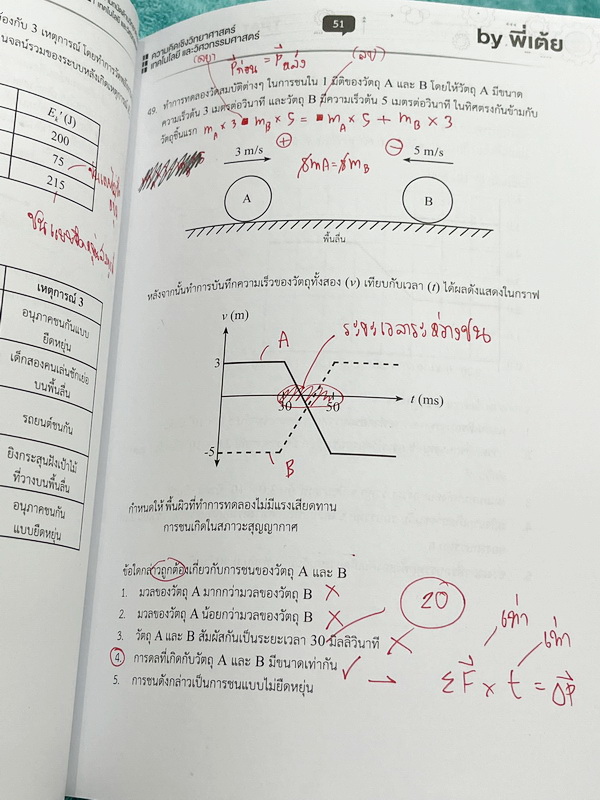 ความคิดเชิงวิทยาศาสตร์
เทคโนโลยี และวิศวกรรมศาสตร์
51
by พี่เต้ย
องกับ 3 เหตุการณ์
Eₖ' (J)
200
75
215
เหตุการณ์ 3
อนุภาคชนกันแบบ
ยืดหยุ่น
เด็กสองคนเล่นชักเย่อ
บนพื้นลื่น
รถยนต์ชนกัน
ยิงกระสุนฝังเป้าไม้
ที่วางบนพื้นลื่น
อนุภาคชนกัน
แบบยืดหยุ่น
P ก่อน = P หลัง
49. ทำการทดลองวัดสมบัติต่างๆ ในการชนใน 1 มิติของวัตถุ A และ B โดยให้วัตถุ A มีขนาด
ความเร็วต้น 3 เมตรต่อวินาที และวัตถุ B มีความเร็วต้น 5 เมตรต่อวินาที ในทิศตรงกันข้ามกับ
วัตถุชิ้นแรก
3 m/s
5 m/s
8mA = 8mB
A
B
พื้นลื่น
หลังจากนั้นทำการบันทึกความเร็วของวัตถุทั้งสอง (v) เทียบกับเวลา (t) ได้ผลดังแสดงในกราฟ
v (m)
A
ระยะเวลาระหว่างชน
3
30
50
t (ms)
-5
B
กำหนดให้ พื้นผิวที่ทำการทดลองไม่มีแรงเสียดทาน
การชนเกิดในสภาวะสุญญากาศ
ข้อใดกล่าวถูกต้องเกี่ยวกับการชนของวัตถุ A และ B
1. มวลของวัตถุ A มากกว่ามวลของวัตถุ B
2. มวลของวัตถุ A น้อยกว่ามวลของวัตถุ B
3. วัตถุ A และ B สัมผัสกันเป็นระยะเวลา 30 มิลลิวินาที
4. การดลที่เกิดกับวัตถุ A และ B มีขนาดเท่ากัน
5. การชนดังกล่าวเป็นการชนแบบไม่ยืดหยุ่น
20
เท่า
เท่า
ΣF × t = ΔP